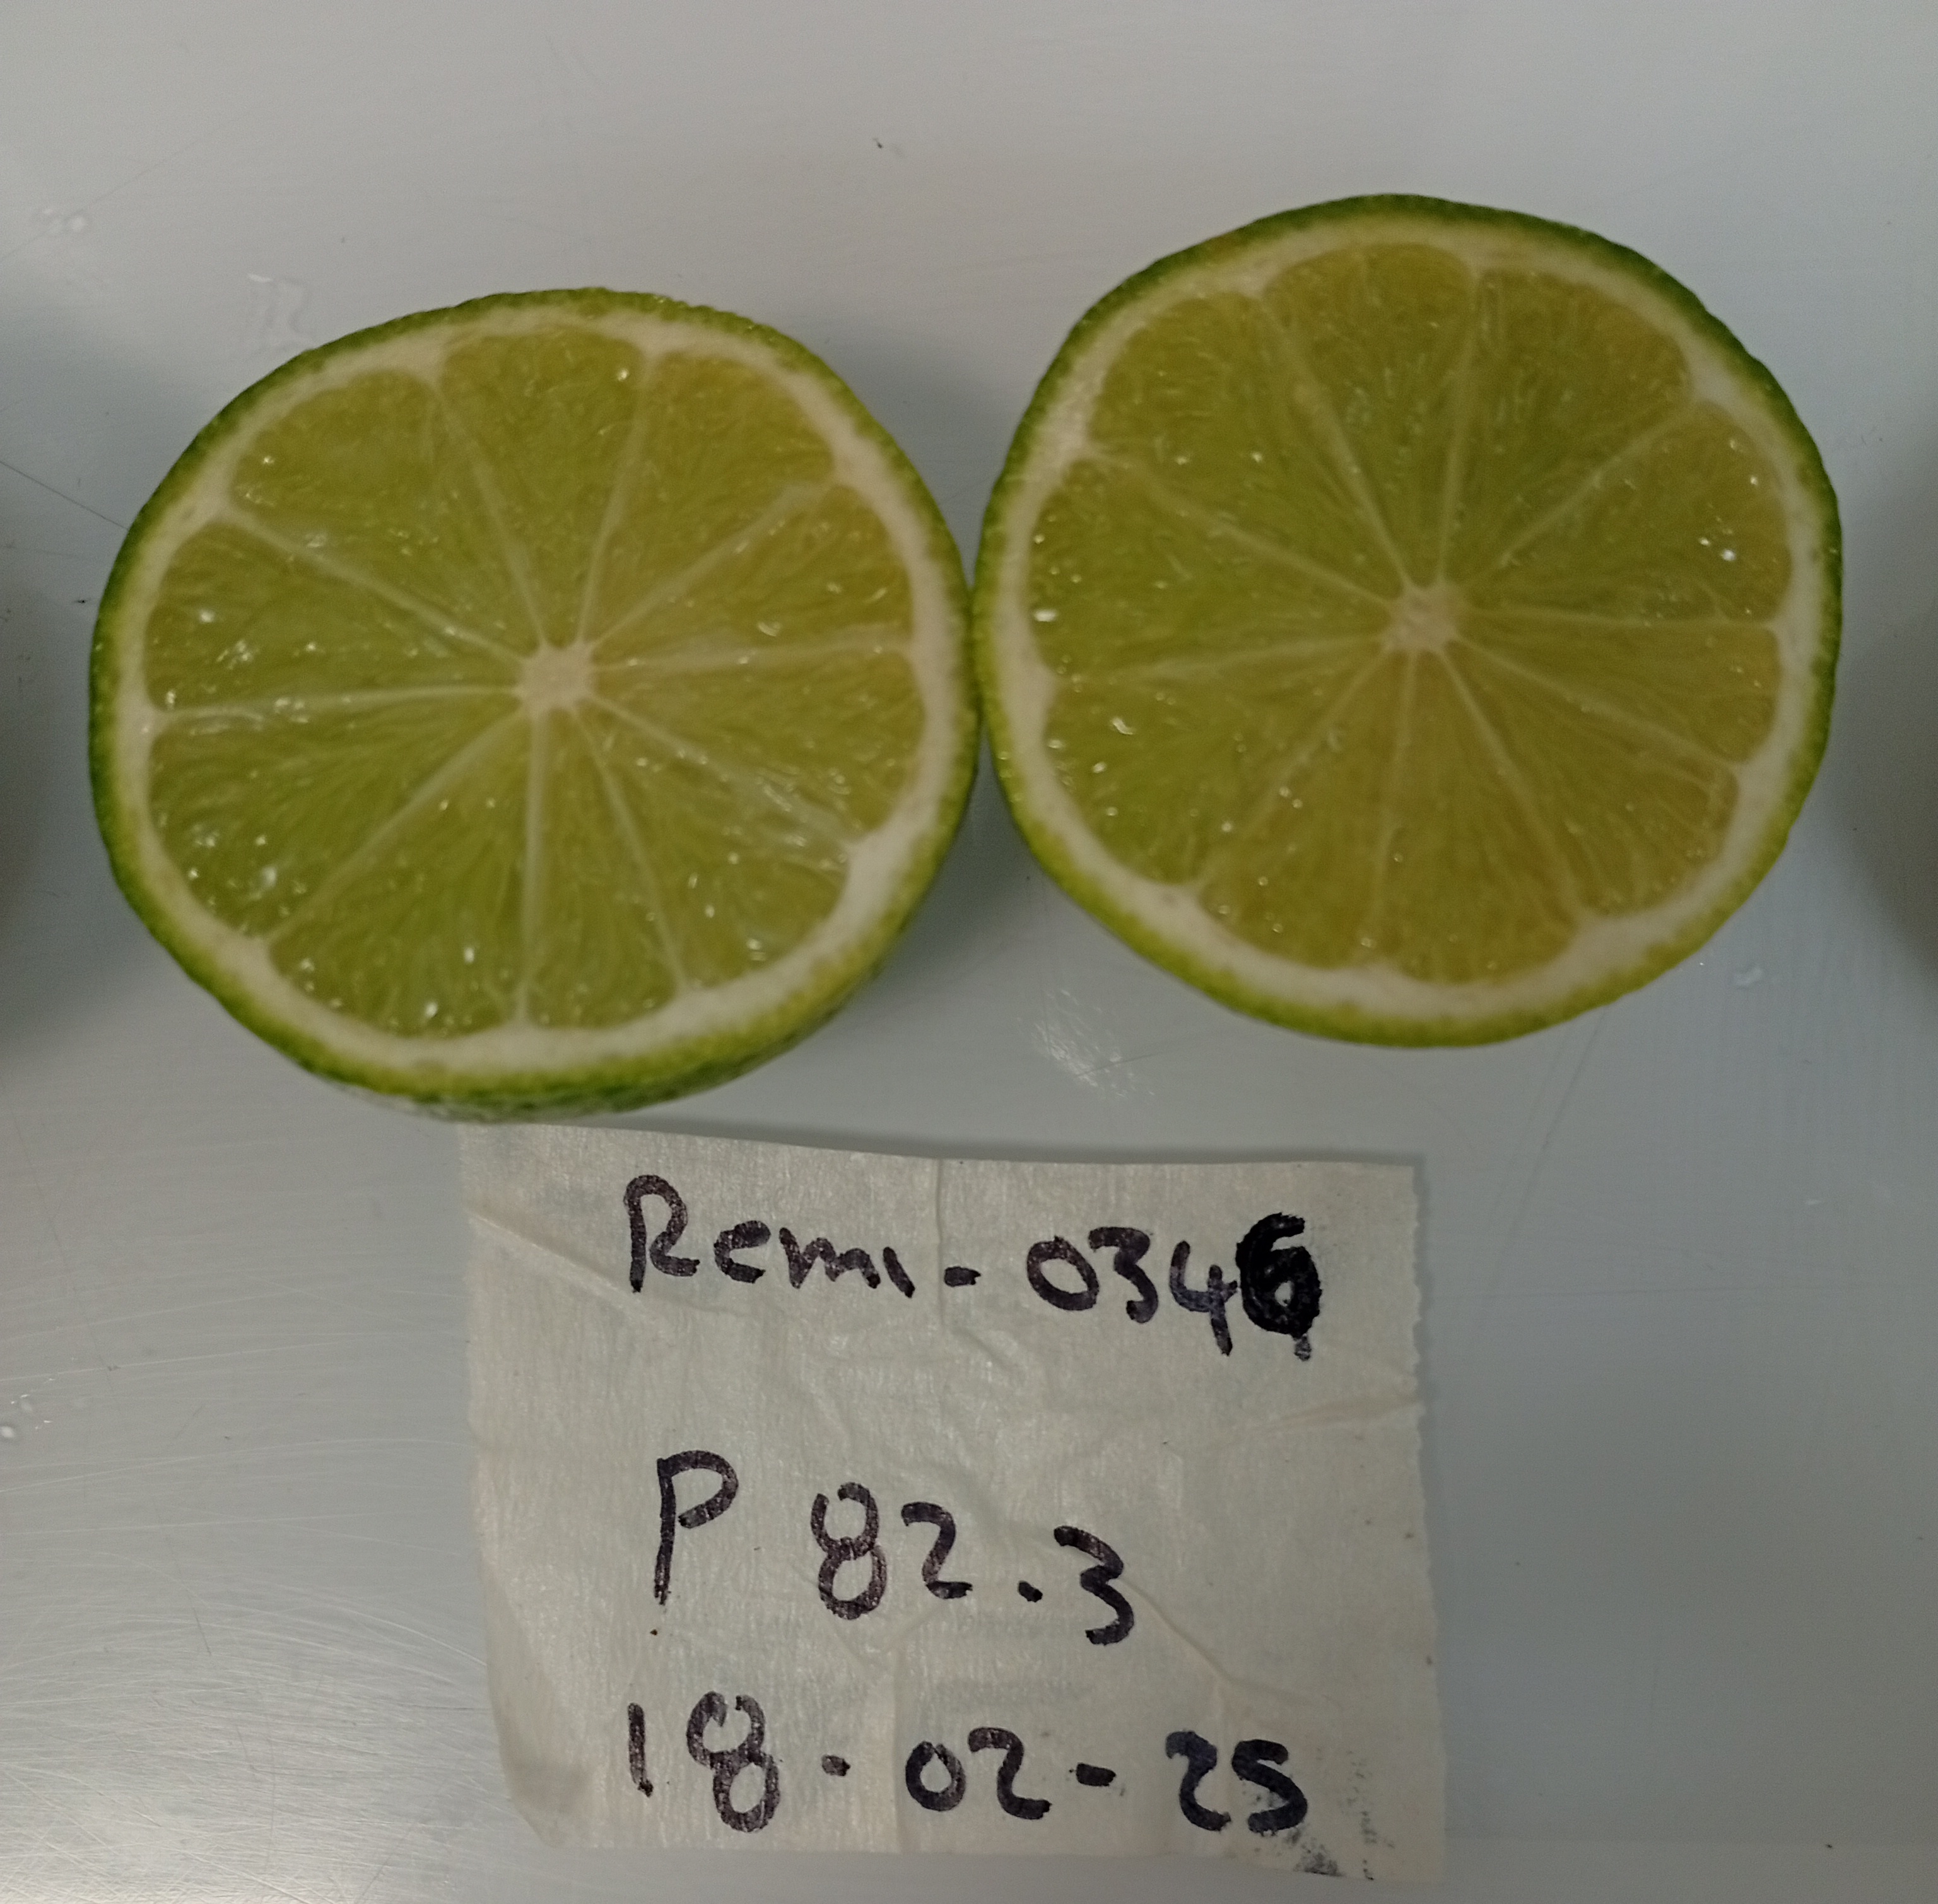 Remi-0346
P 82.3
18-02-25